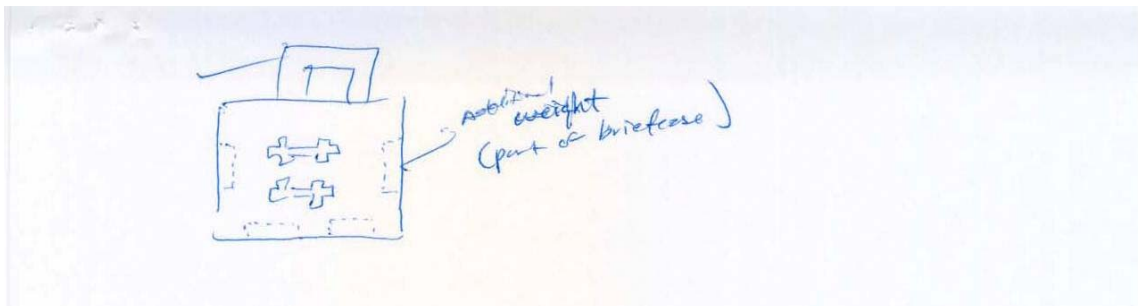 Additional
weight
(part of briefcase)